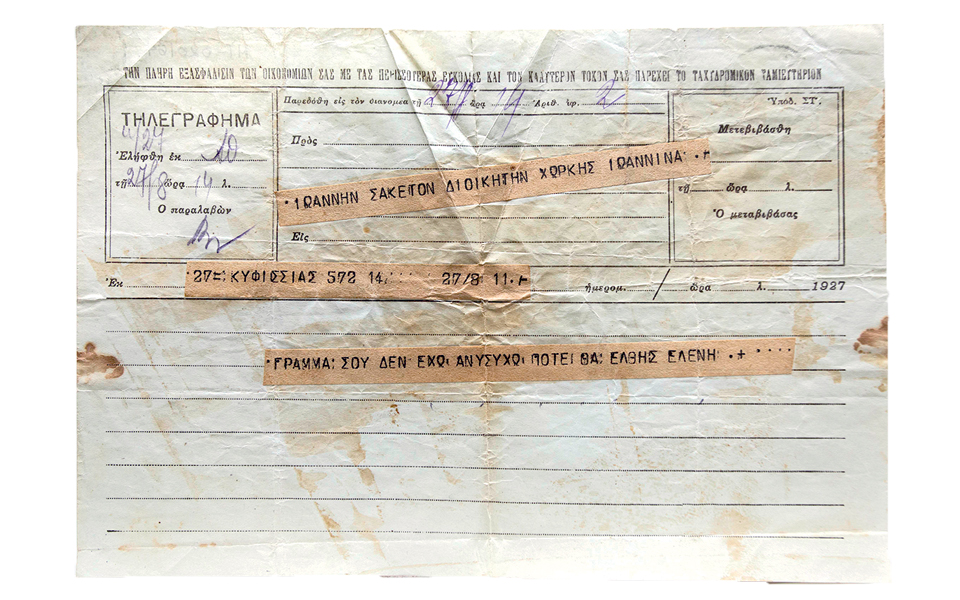 ΤΗΝ ΠΛΗΡΗ ΕΞΑΣΦΑΛΙΣΙΝ ΤΩΝ ΟΙΚΟΝΟΜΙΩΝ ΣΑΣ ΜΕ ΤΑΣ ΠΕΡΙΣΣΟΤΕΡΑΣ ΕΥΚΟΛΙΑΣ ΚΑΙ ΤΟΝ ΚΑΛΥΤΕΡΟΝ ΤΟΚΟΝ ΣΑΣ ΠΑΡΕΧΕΙ ΤΟ ΤΑΧΥΔΡΟΜΙΚΟΝ ΤΑΜΙΕΥΤΗΡΙΟΝ
ΤΗΛΕΓΡΑΦΗΜΑ
4/27
Ἐλήφθη ἐκ
τῇ 27/8 ὥρα 14 λ.
Ὁ παραλαβὼν
Παρεδόθη εἰς τὸν διανομέα τῇ 27/8 ὥρα 14 Ἀριθ. ἐφ. 2
Πρὸς
ΙΩΑΝΝΗΝ ΣΑΚΕΤΟΝ ΔΙΟΙΚΗΤΗΝ ΧΩΡΚΗΣ ΙΩΑΝΝΙΝΑ
Εἰς
Ὑπόδ. ΣΤ΄.
Μετεβιβάσθη
τῇ ὥρα λ.
Ὁ μεταβιβάσας
Ἐκ 27= ΚΥΦΙΣΣΙΑΣ 572 14 27/8 11 ἡμερομ. / ὥρα λ. 1927
ΓΡΑΜΜΑ; ΣΟΥ ΔΕΝ ΕΧΩ; ΑΝΥΣΥΧΩ; ΠΟΤΕΙ ΘΑ; ΕΛΘΗΣ ΕΛΕΝΗ .+